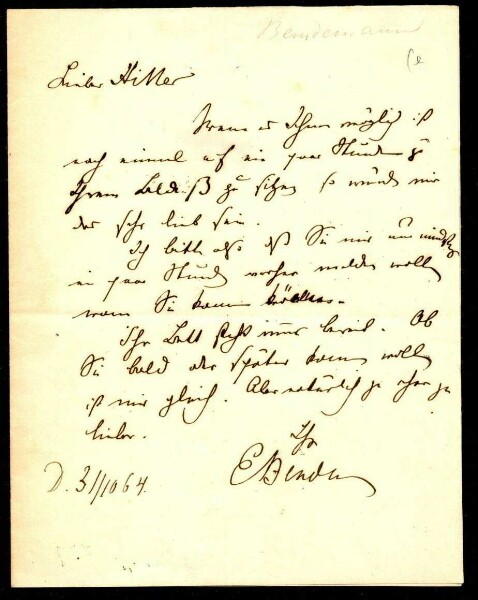 Bendemann
Lieber Hiller
Wenn es Ihnen möglich ist
noch einmal auf ein paar Stunden zu
Ihrem Bilde zu sitzen so würde mir
das sehr lieb sein.
Ich bitte also daß Sie mir nur
ein paar Stunden vorher melden wollen
wann Sie kommen können.
Ihr Bett steht immer bereit. Ob
Sie bald oder später kommen wollen
ist mir gleich. Aber natürlich je eher je
lieber.
Ihr
E Bendem
D. 31/10 64.